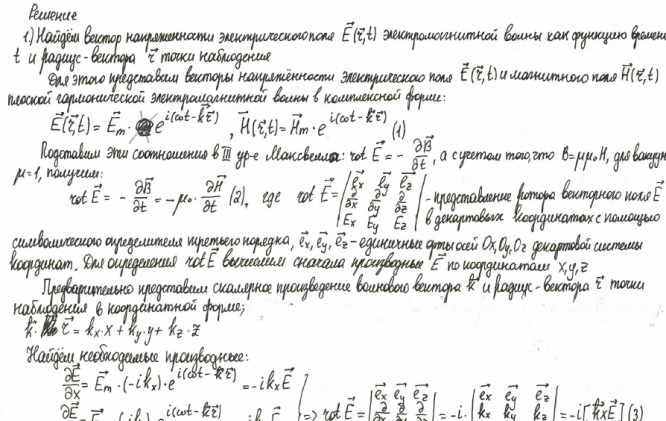 Решение
1.) Найдём вектор напряженности электрического поля E⃗(r⃗,t) электромагнитной волны как функцию времени
t и радиус-вектора r⃗ точки наблюдения
Для этого представим векторы напряжённости электрического поля E⃗(r⃗,t) и магнитного поля H⃗(r⃗,t)
плоской гармонической электромагнитной волны в комплексной форме:
E⃗(r⃗,t) = E⃗m · e^i(ωt - k⃗r⃗), H⃗(r⃗,t) = H⃗m · e^i(ωt - k⃗r⃗) (1)
Подставим эти соотношения в III ур-е Максвелла: rot E⃗ = - ∂B⃗/∂t, а с учетом того, что B=μμ₀H, для вакуума
μ=1, получим:
rot E⃗ = - ∂B⃗/∂t = -μ₀ · ∂H⃗/∂t (2), где rot E⃗ = |e⃗x e⃗y e⃗z; ∂/∂x ∂/∂y ∂/∂z; Ex Ey Ez| - представление ротора векторного поля E⃗
в декартовых координатах с помощью
символического определителя третьего порядка, e⃗x, e⃗y, e⃗z - единичные орты осей Ox, Oy, Oz декартовой системы
координат. Для определения rot E⃗ вычислим сначала производные E⃗ по координатам x, y, z
Предварительно представим скалярное произведение волнового вектора k⃗ и радиус-вектора r⃗ точки
наблюдения в координатной форме;
k⃗ · r⃗ = kx·x + ky·y + kz·z
Найдём необходимые производные:
∂E⃗/∂x = E⃗m · (-ikx) · e^i(ωt - k⃗r⃗) = -ikx E⃗
=> rot E⃗ = |e⃗x e⃗y e⃗z; ∂/∂x ∂/∂y ∂/∂z| = -i · |e⃗x e⃗y e⃗z; kx ky kz| = -i[k⃗×E⃗] (3)